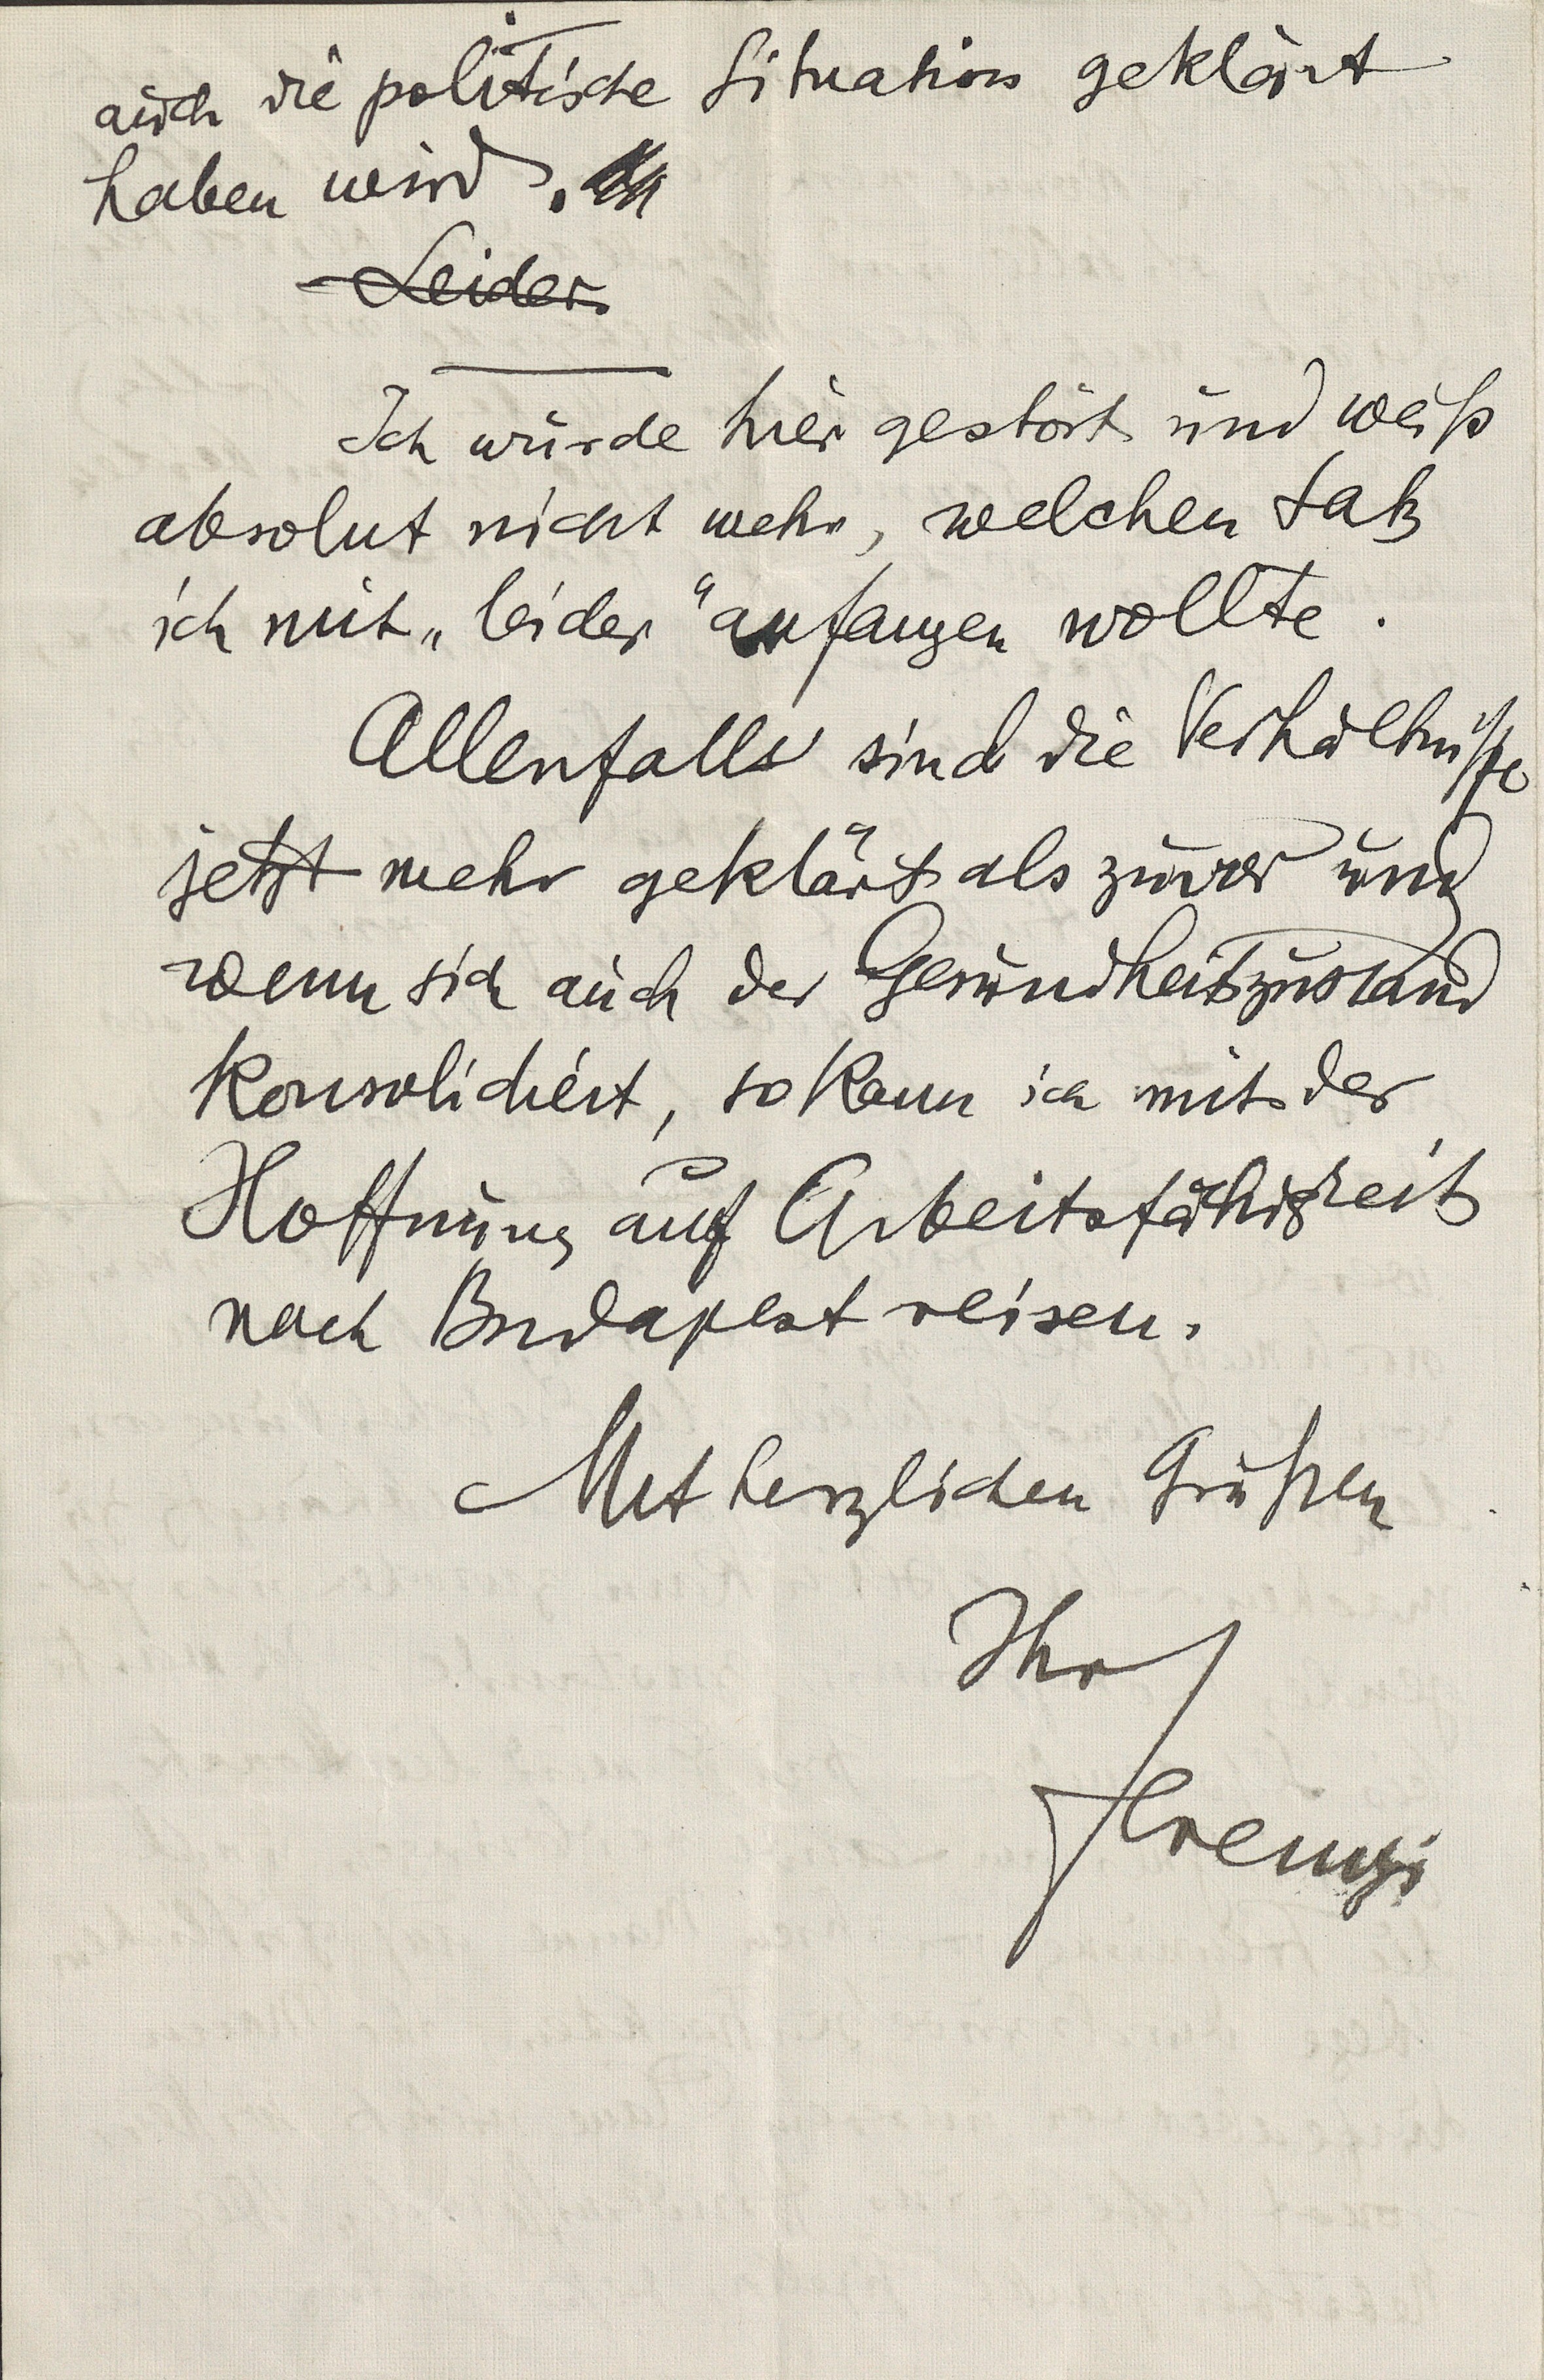 auch die politische Situation geklärt
haben wird.
Leider
Ich wurde hier gestört und weiß
absolut nicht mehr, welchen Satz
ich mit „leider“ anfangen wollte.
Allenfalls sind die Verhältnisse
jetzt mehr geklärt als zuvor und
wenn sich auch der Gesundheitszustand
konsolidiert, so kann ich mit der
Hoffnung auf Arbeitsfähigkeit
nach Budapest reisen.
Mit herzlichen Grüßen
Ihr
Ferenczi